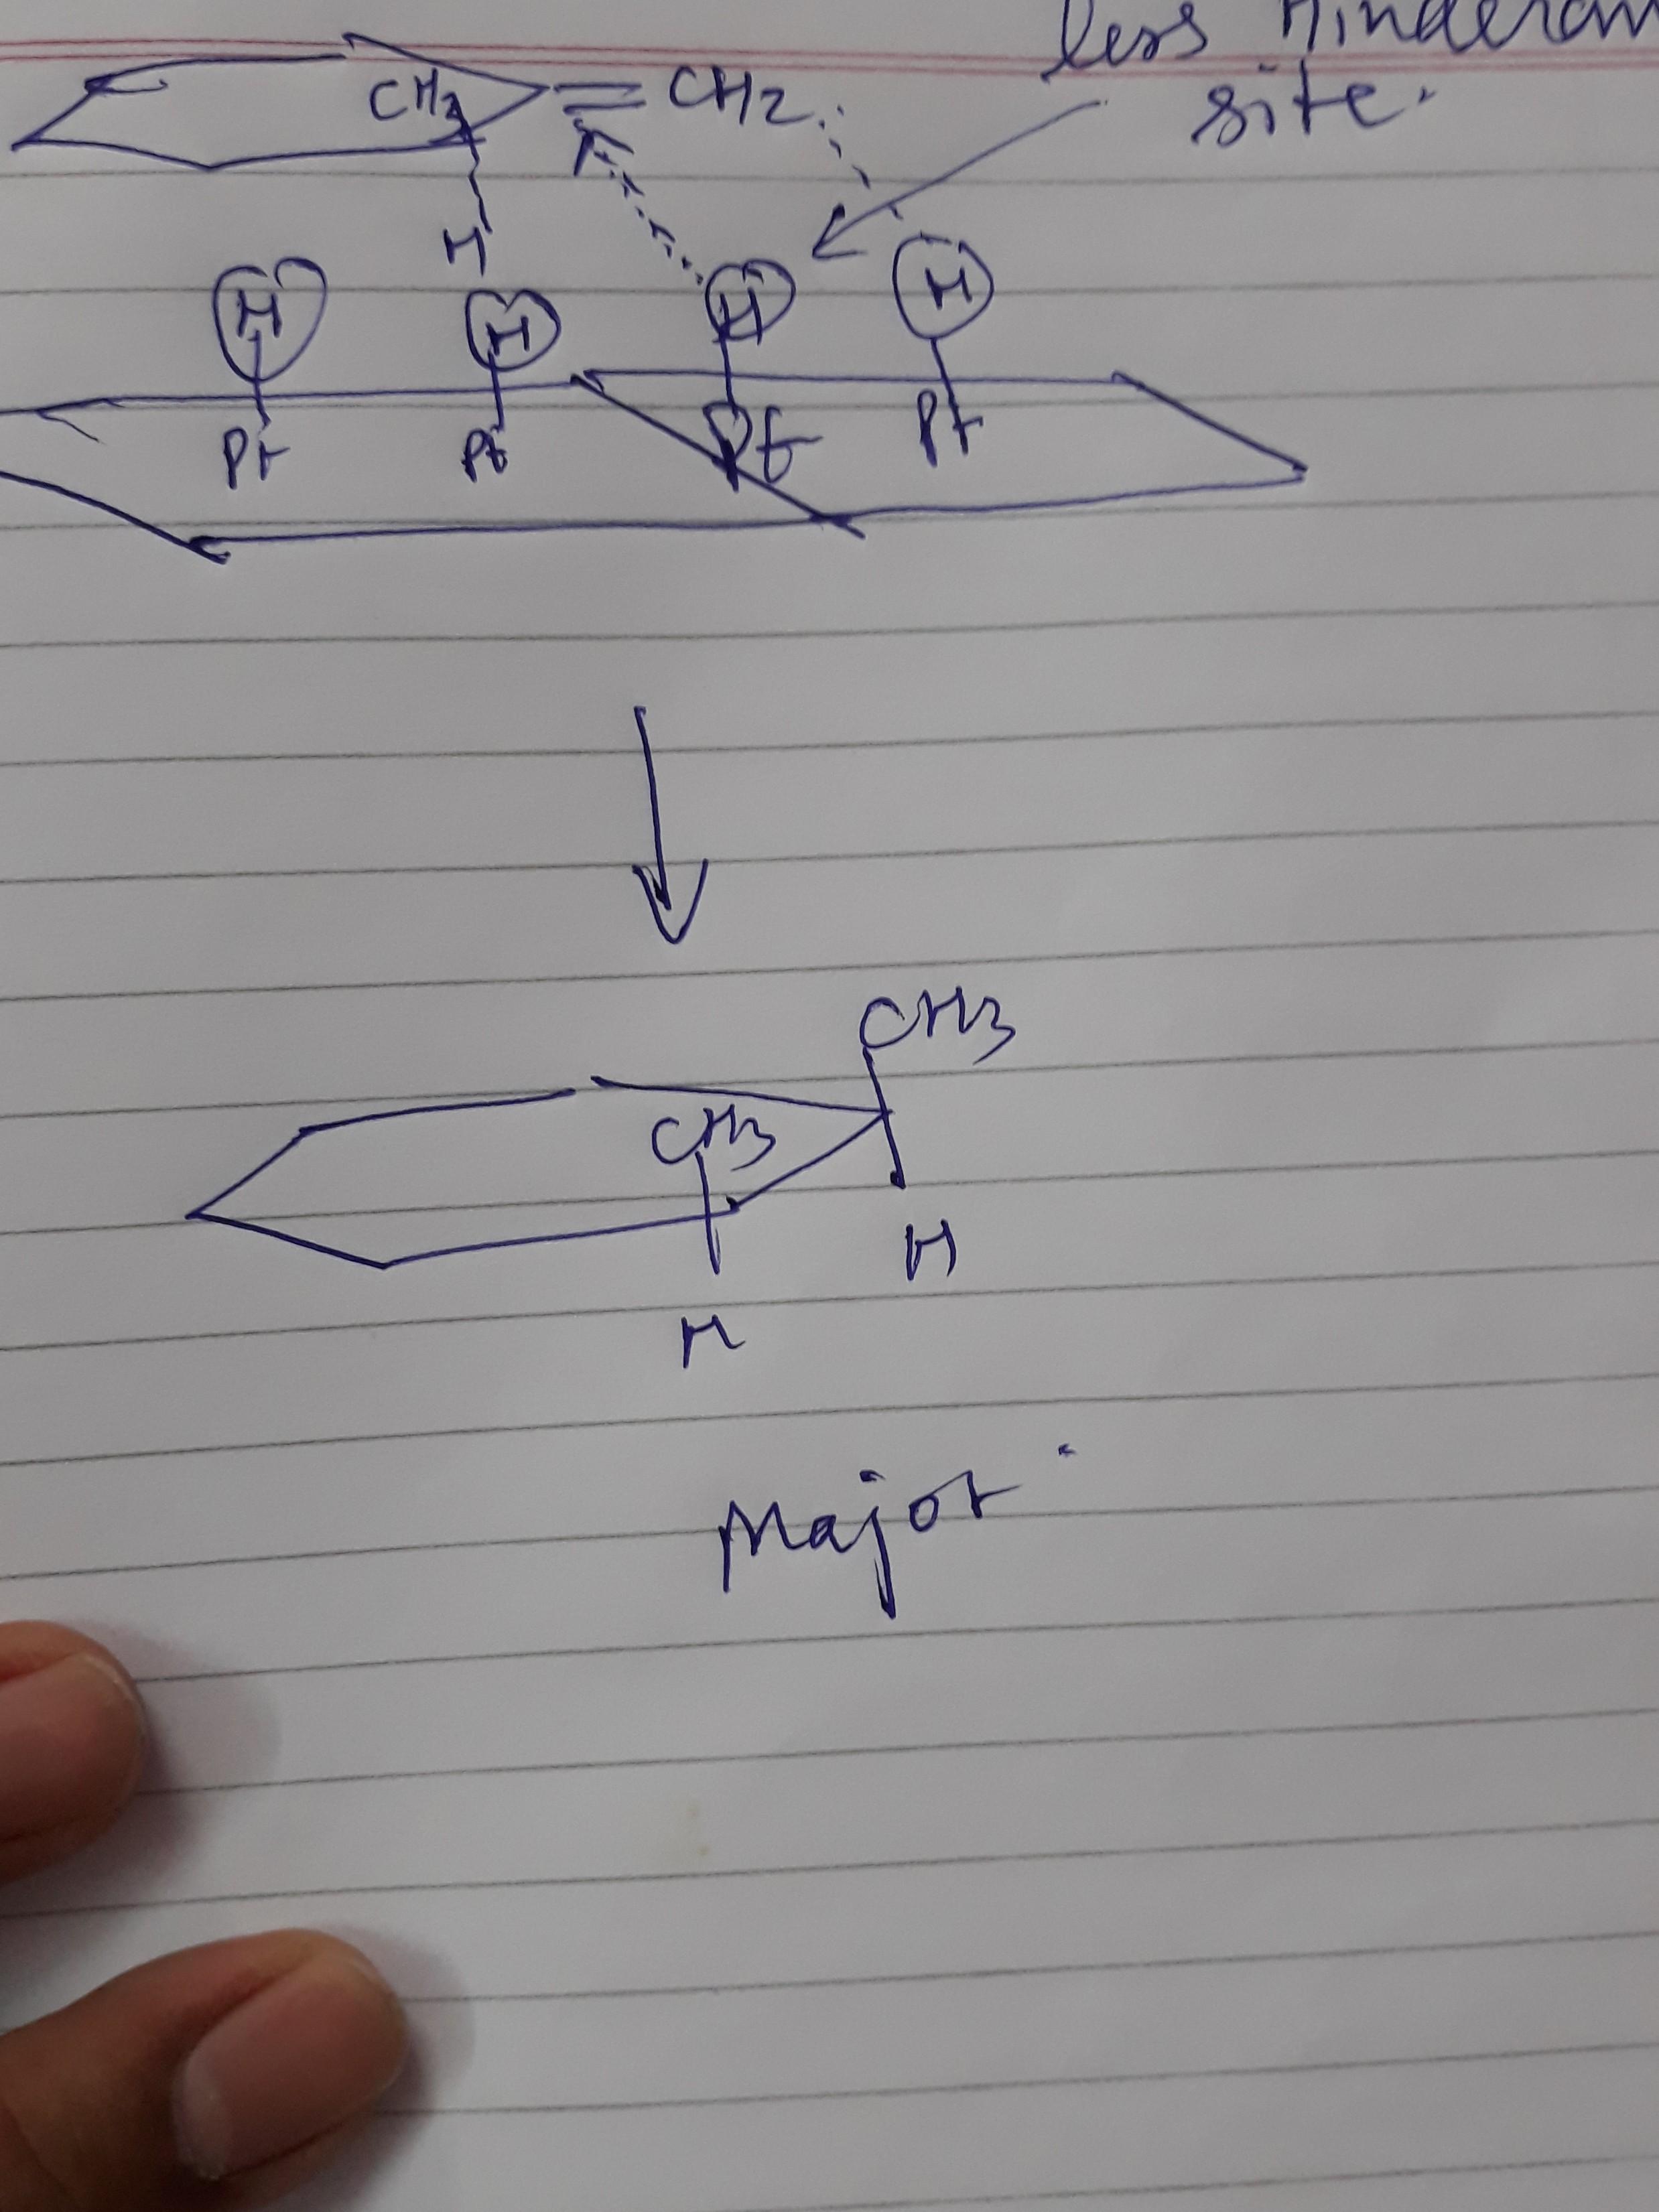 less Hinderan
site.
CH3 = CH2
H
H H H H
Pt Pt Pt Pt
CH3
CH3
H
H
Major